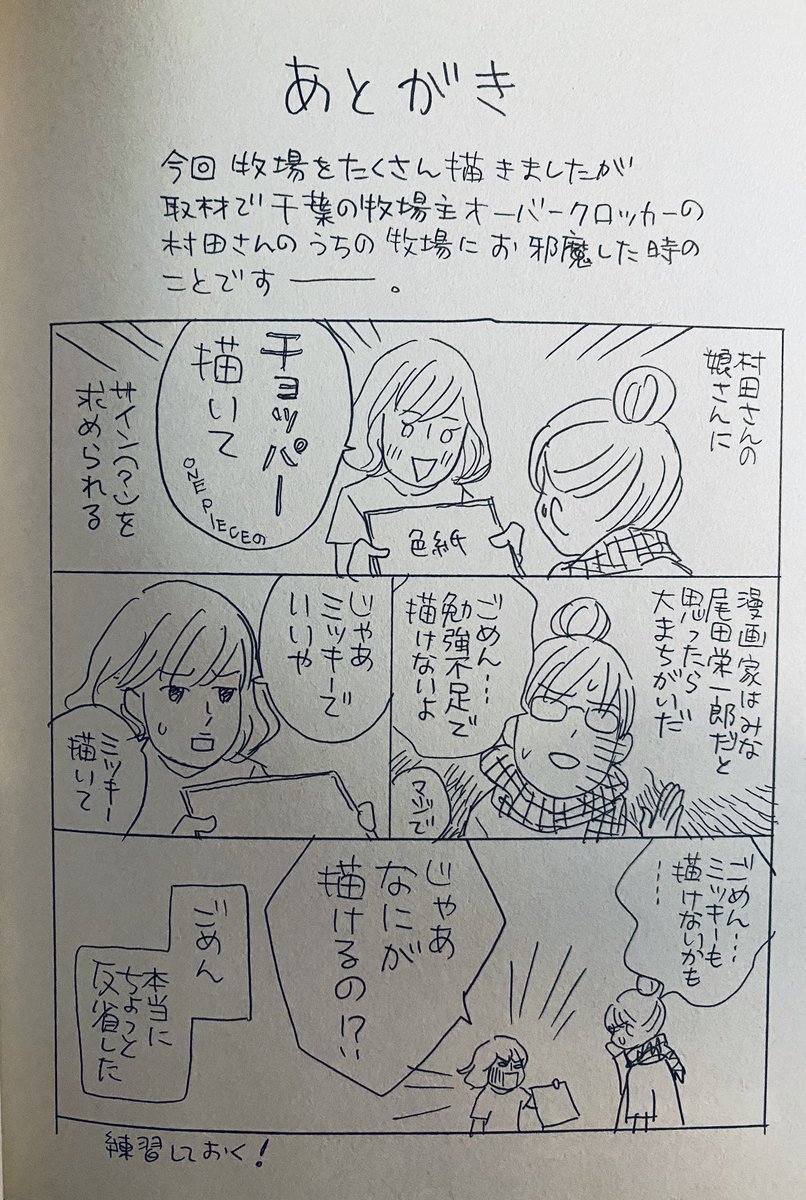 あとがき
今回牧場をたくさん描きましたが
取材で千葉の牧場主オーバークロッカーの
村田さんのうちの牧場にお邪魔した時の
ことです――。
村田さんの
娘さんに
色紙
チョッパー
描いて
ONE PIECEの
サイン(マン)を
求められる
漫画家はみな
尾田栄一郎だと
思ったら
大まちがいだ
ごめん…
勉強不足で
描けないよ
マジで
じゃあ
ミッキーで
いいや
ミッキー
描いて
ごめん…
ミッキーも
描けないかも
……
じゃあ
なにが
描けるの!?
ごめん
本当に
ちょっと
反省した
練習しておく!